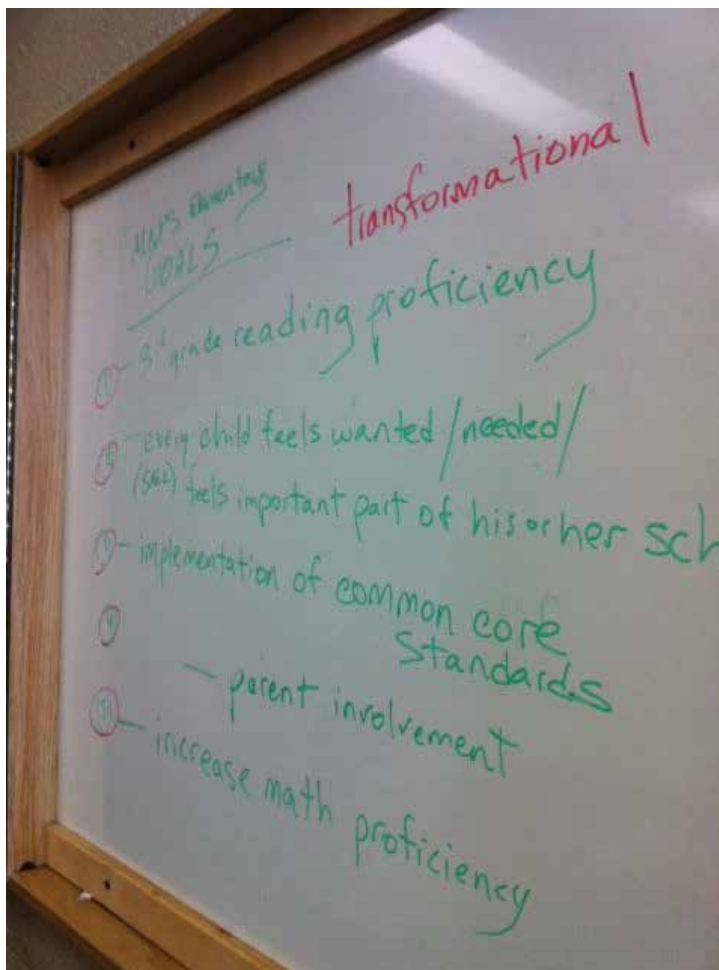 MNPS Elementary
GOALS
transformational
① - 3rd grade reading proficiency
② - every child feels wanted/needed/
(SEL) feels important part of his or her sch
③ - implementation of common core
standards
④
- parent involvement
⑤ - increase math proficiency